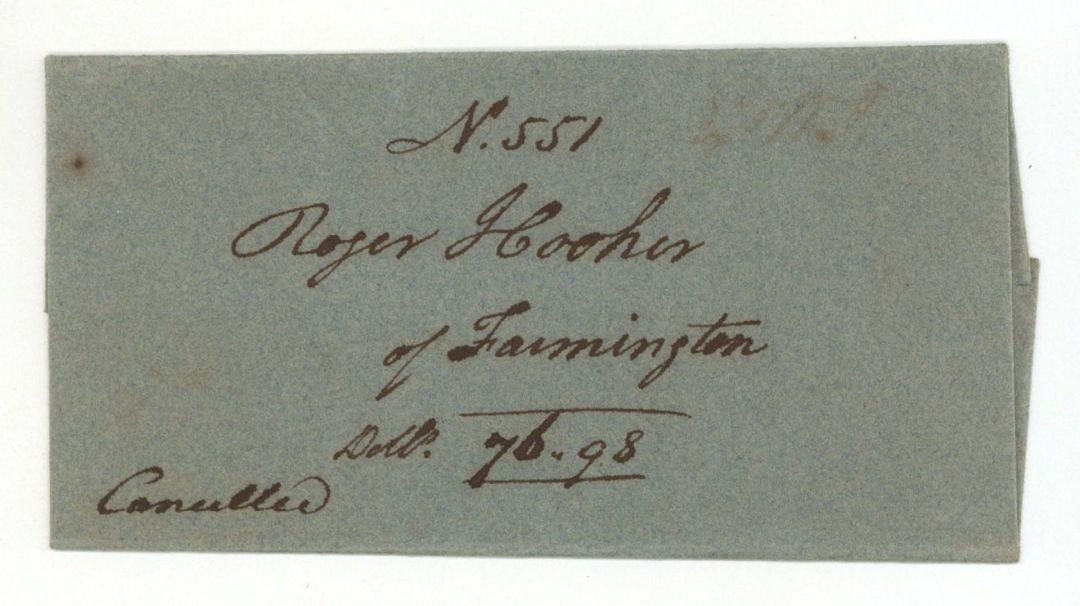 N. 551
Roger Hooker
of Farmington
Dolls. 76..98
Cancelled